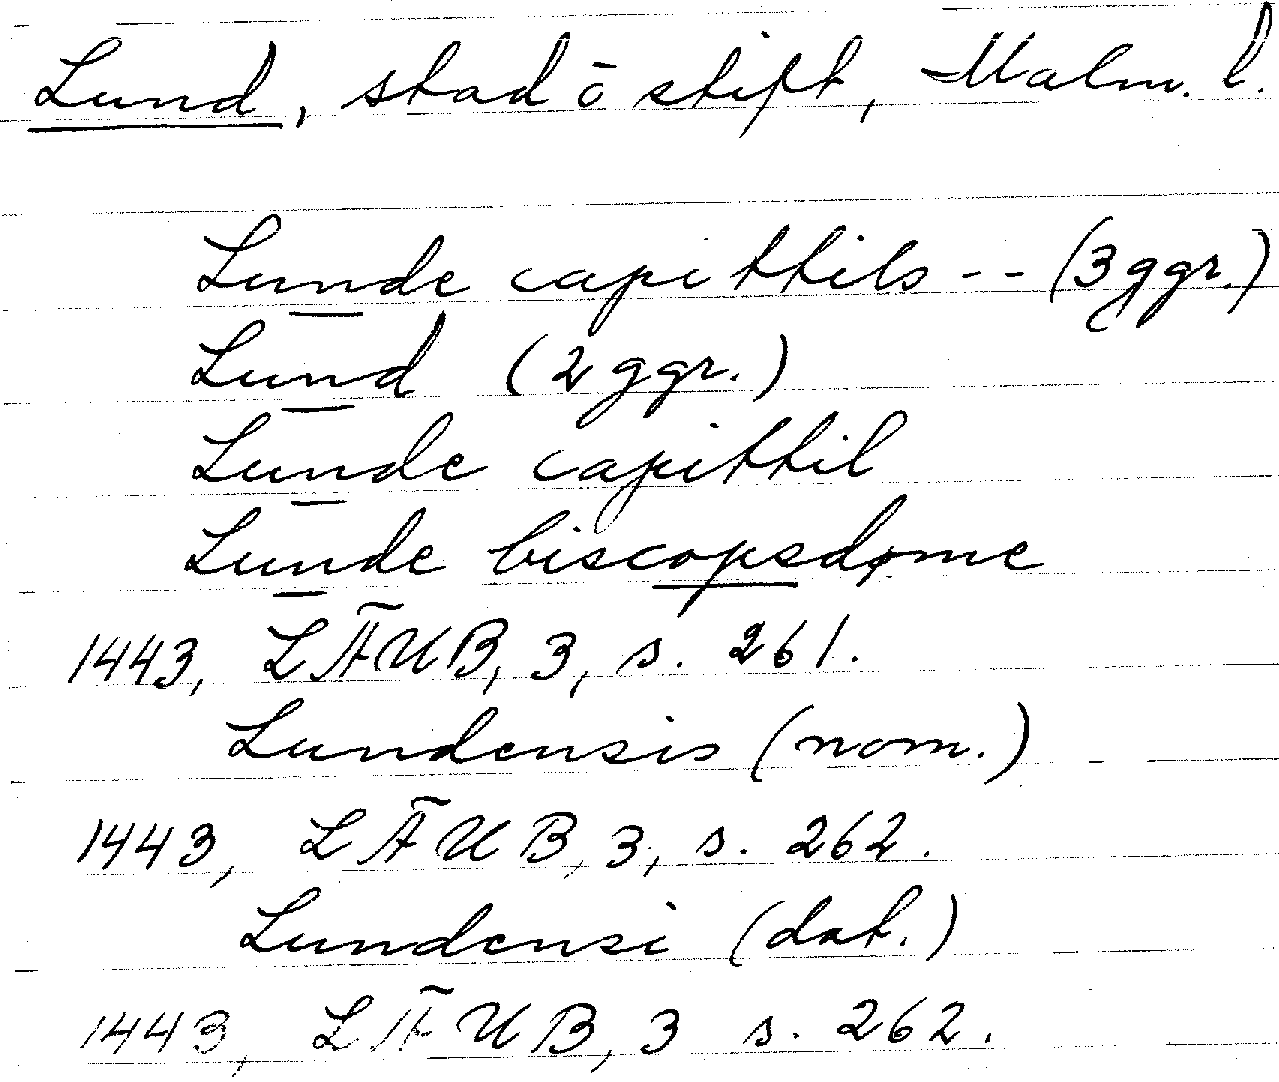 Lund, stad ō stift, Malm. l.
Lunde capittils -- (3 ggr.)
Lund (2 ggr.)
Lunde capittil
Lunde biscopsdøme
1443, LÄUB, 3, s. 261.
Lundensis (nom.)
1443, LÄUB, 3, s. 262.
Lundensi (dat.)
1443, LÄUB, 3 s. 262.